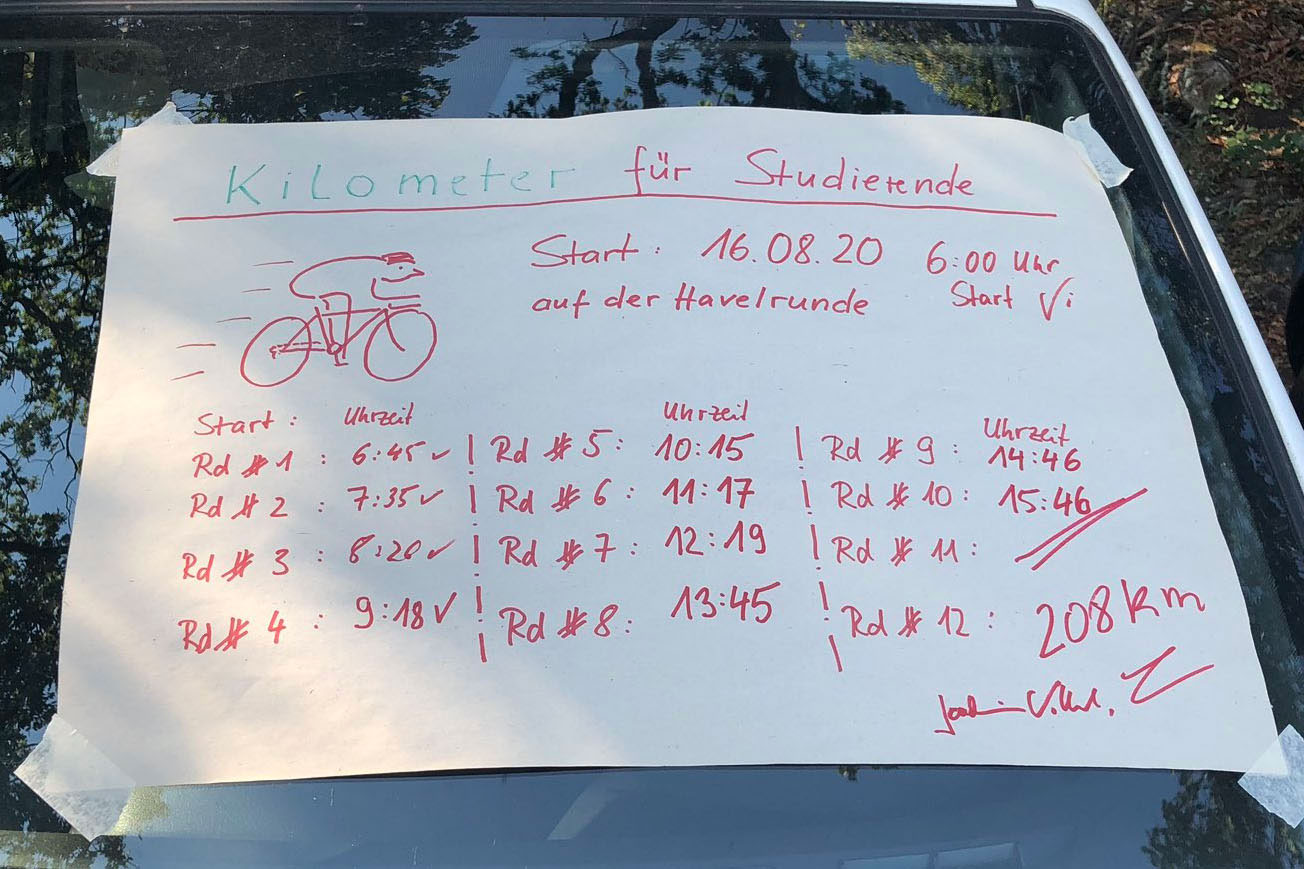 Kilometer für Studierende
Start: 16.08.20 6:00 Uhr
auf der Havelrunde Start Vi
Start: Uhrzeit
Rd #1 : 6:45 ✓
Rd # 2 : 7:35 ✓
Rd # 3 : 8:20 ✓
Rd # 4 : 9:18 ✓
Uhrzeit
Rd # 5: 10:15
Rd # 6: 11:17
Rd # 7: 12:19
Rd # 8: 13:45
Uhrzeit
Rd # 9: 14:46
Rd # 10: 15:46
Rd # 11:
Rd # 12: 208 km